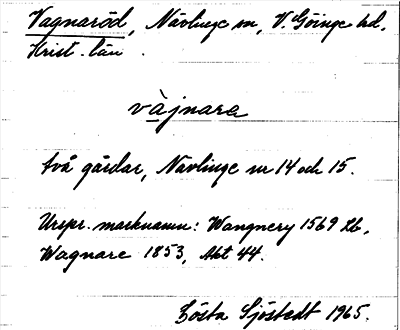 Vagnaröd, Nävlinge sn, V. Göinge hd,
Krist. län.
vàjnara
två gårdar, Nävlinge nr 14 och 15.
Urspr. marknamn: Wangnery 1569 Lb,
Wagnare 1853, Akt 44.
Gösta Sjöstedt 1965.